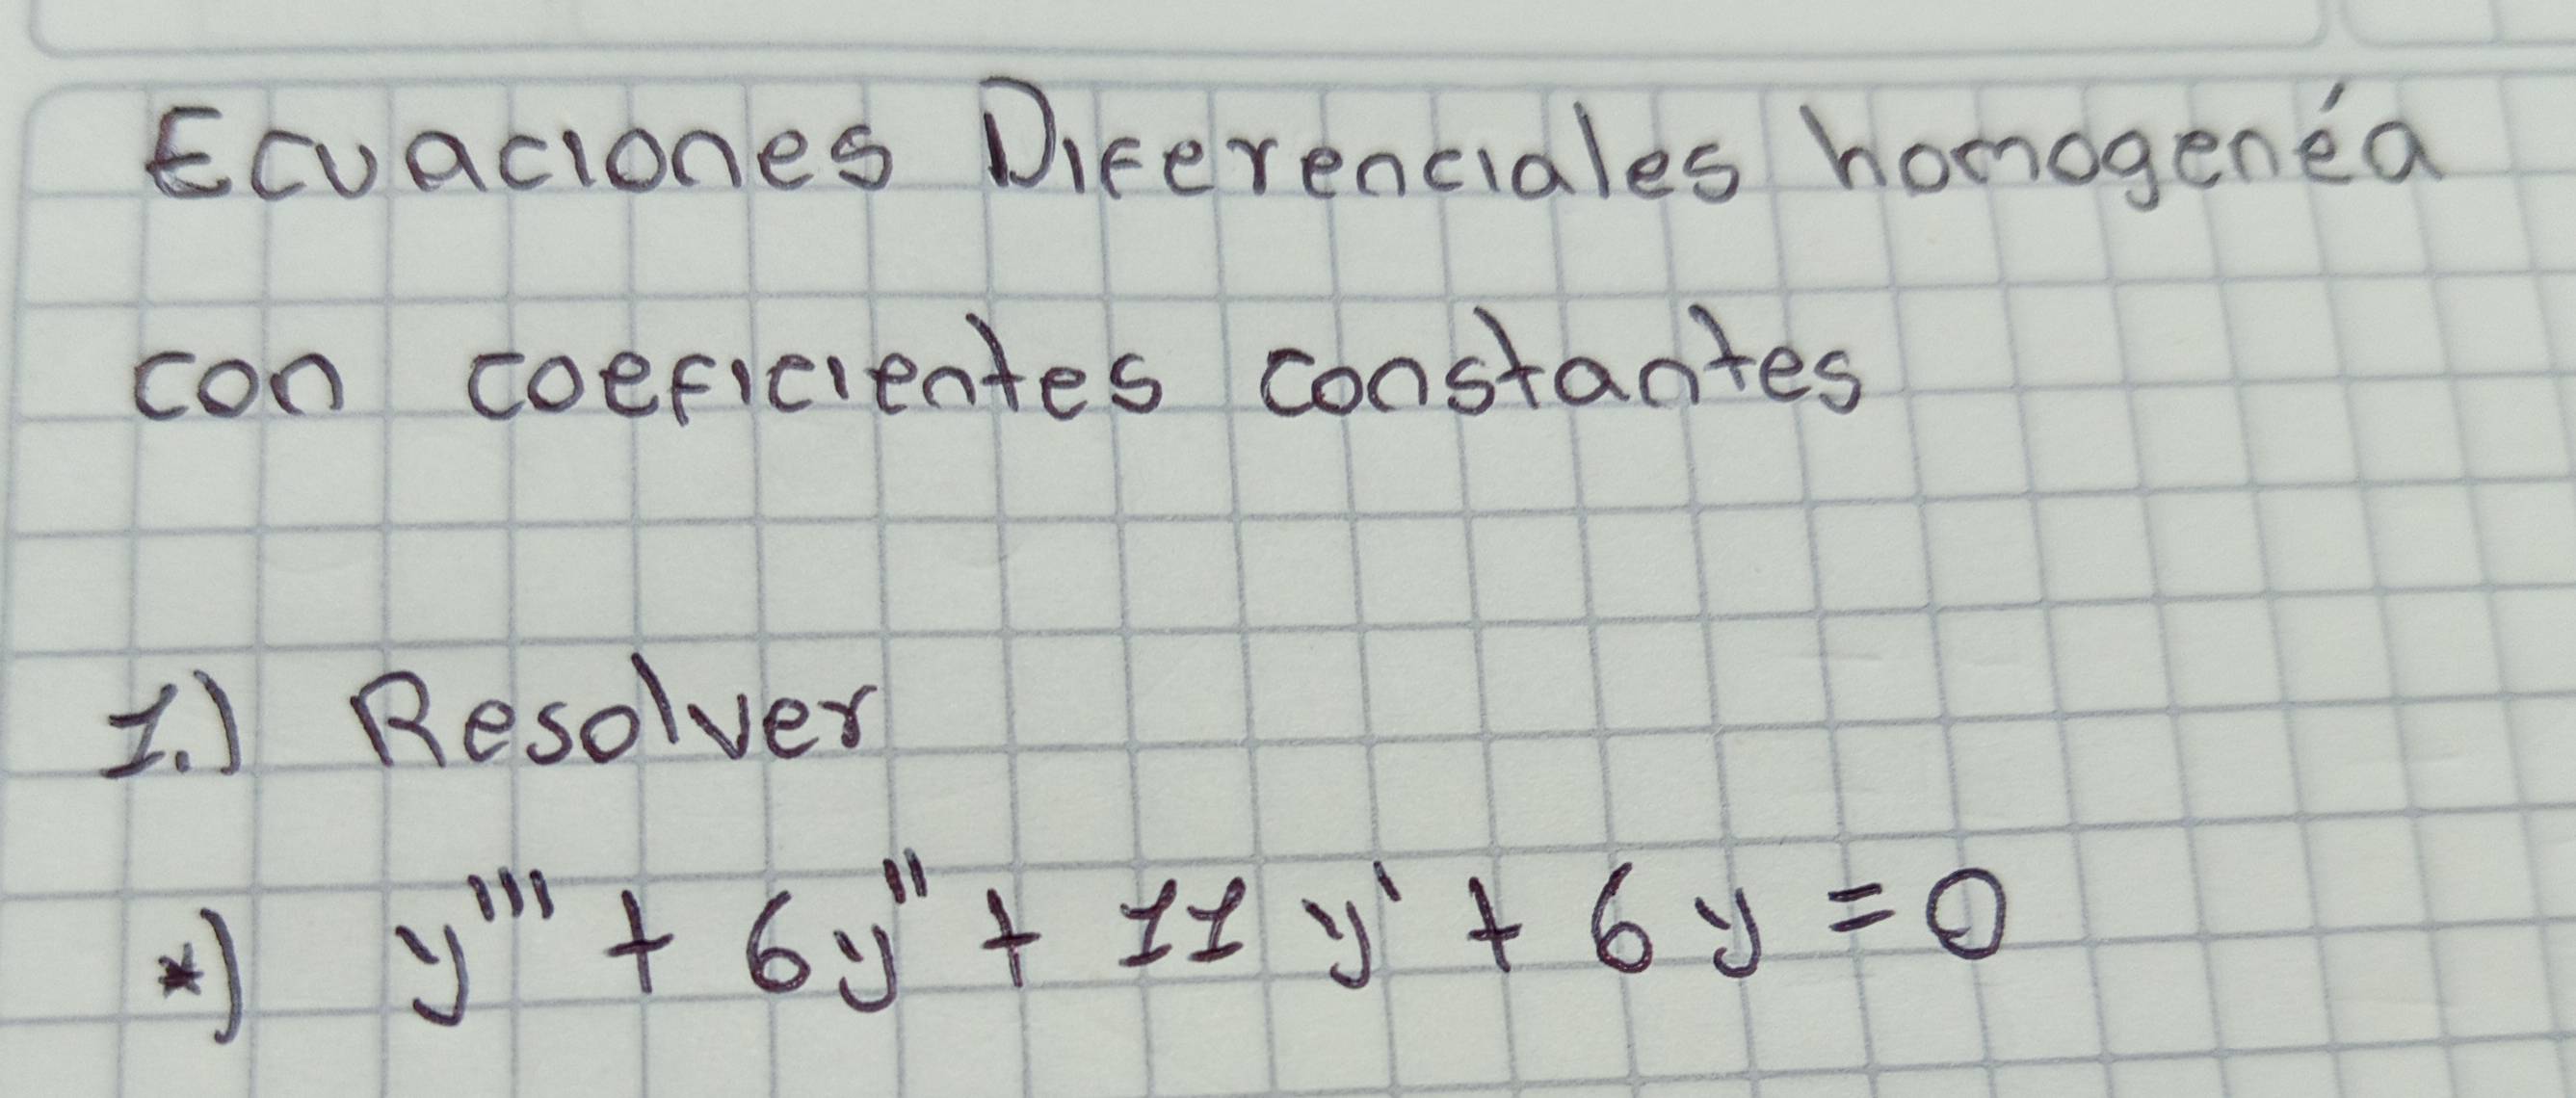 Ecuaciones Diferenciales homogenéa
con coeficientes constantes
1.) Resolver
*) y''' + 6y'' + 11 y' + 6 y = 0